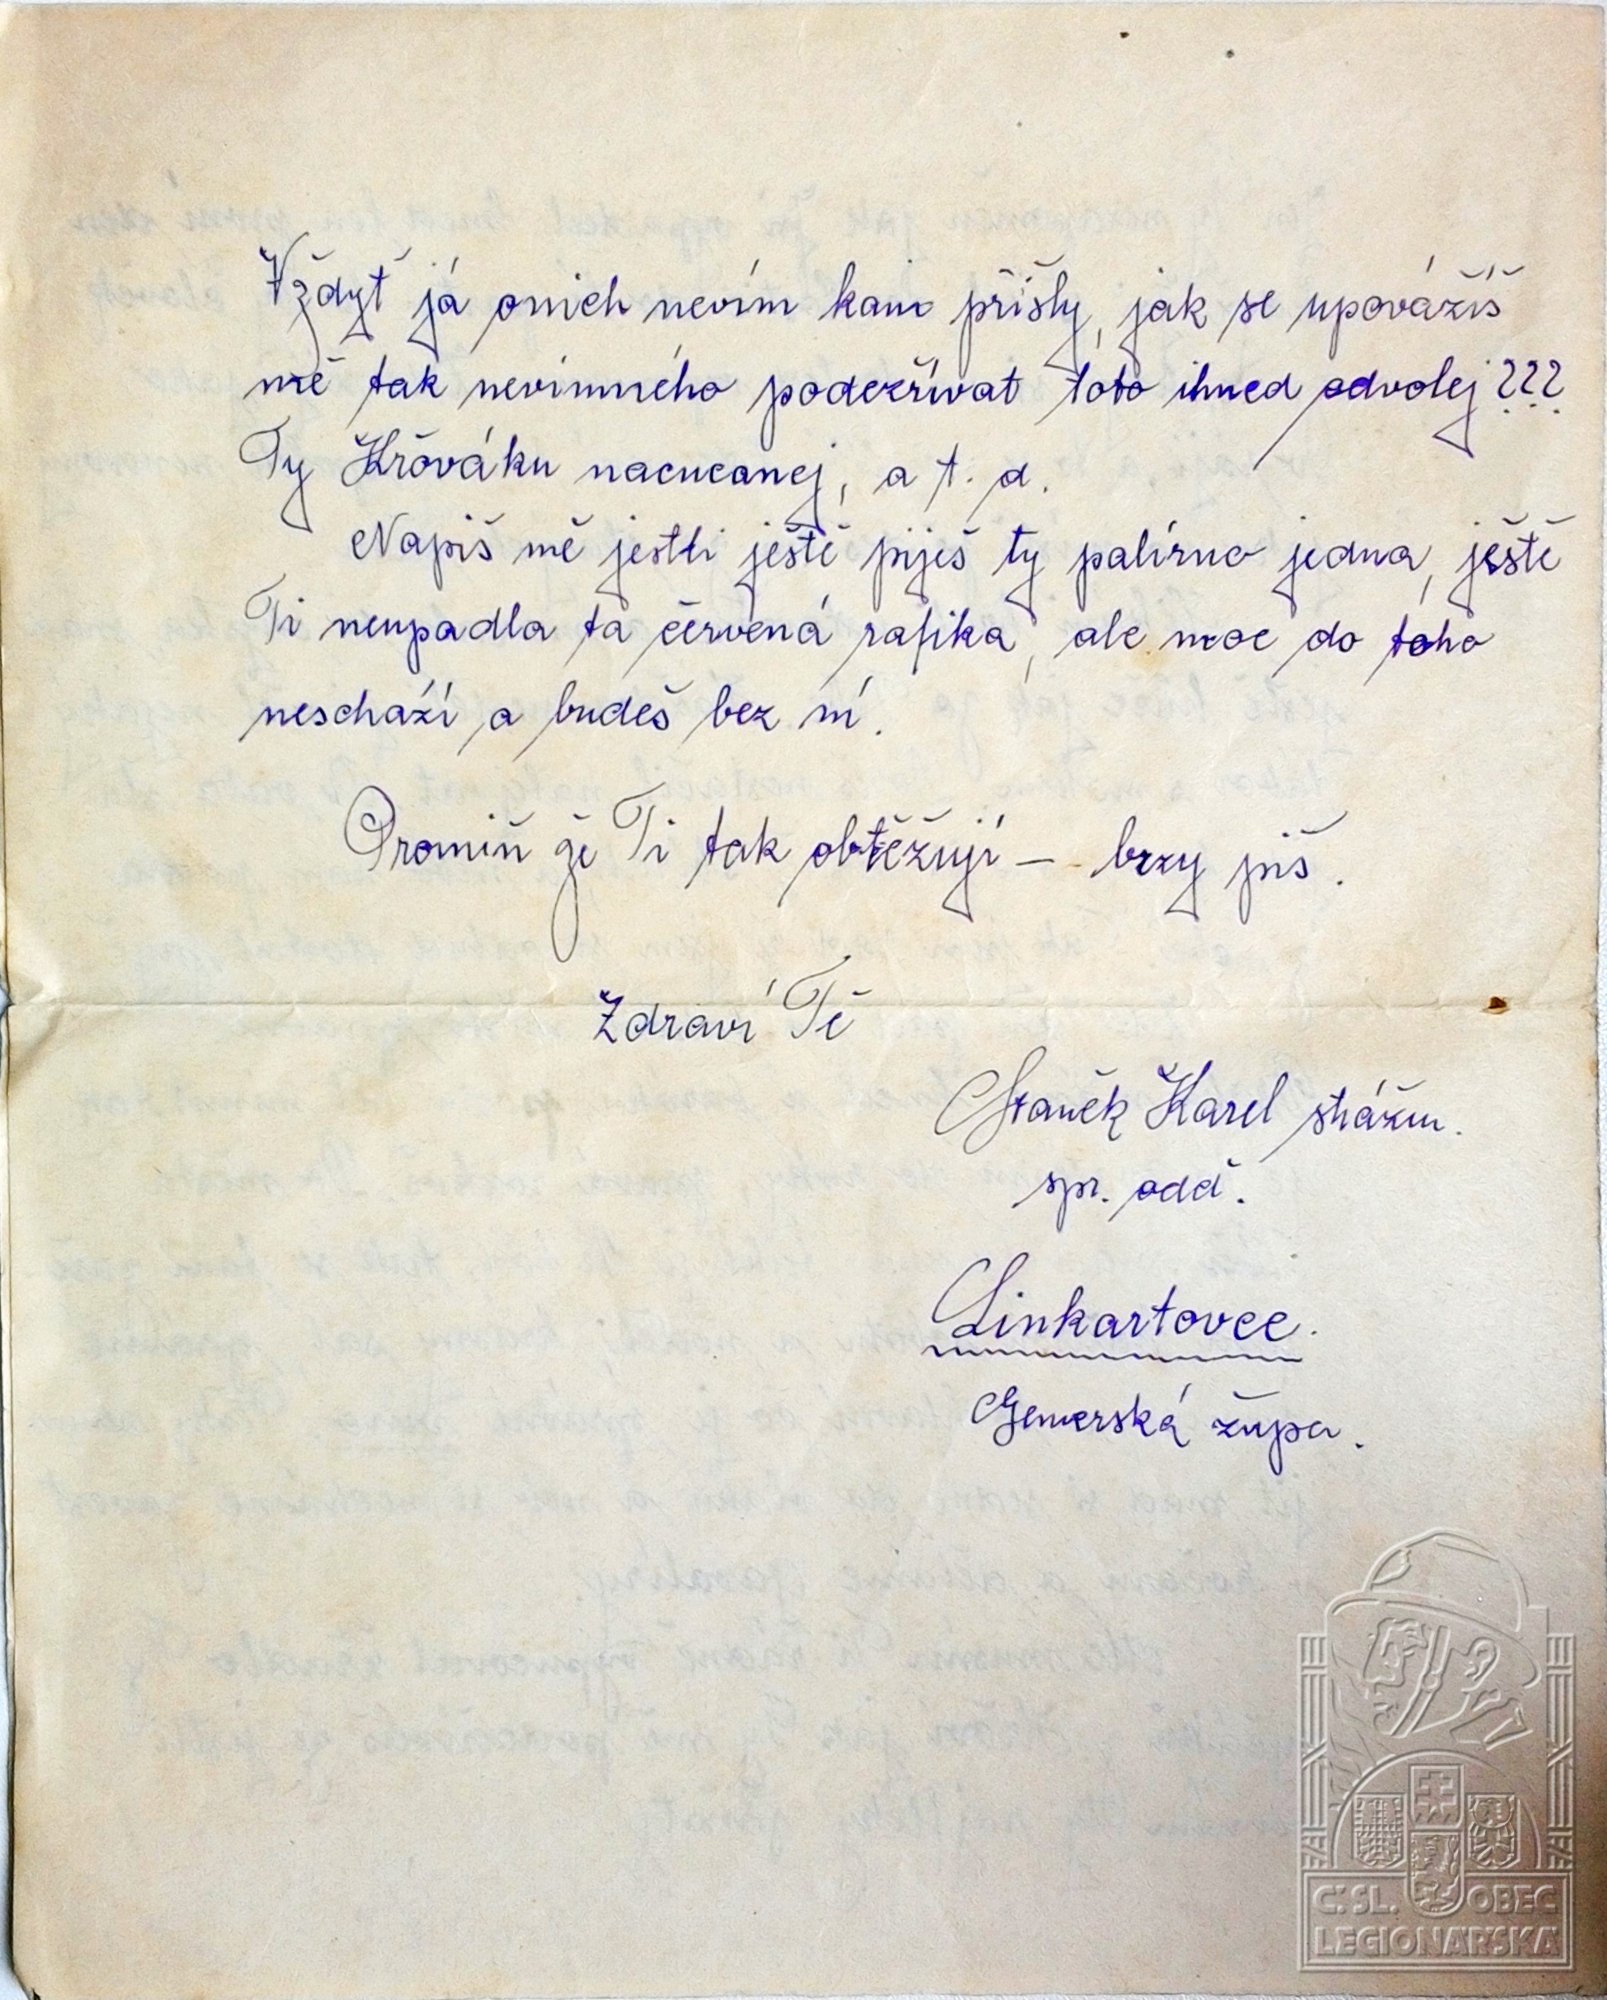 Vždyť já onich nevím kam přišly, jak se upovážíš
mě tak nevinného podezřívat toto ihned odvolej ???
Ty Křováku nacucanej, a t. d.
Napiš mě jestli ještě piješ ty palírno jedna, ještě
Ti neupadla ta červená rafika, ale moc do toho
neschazí a budeš bez ní.
Promiň že Ti tak obtěžují — brzy piš.
Zdraví Tě
Staněk Karel strážm.
spr. odd.
Linkartovce.
Gemerská župa.
Č.SL. OBEC
LEGIONÁŘSKÁ